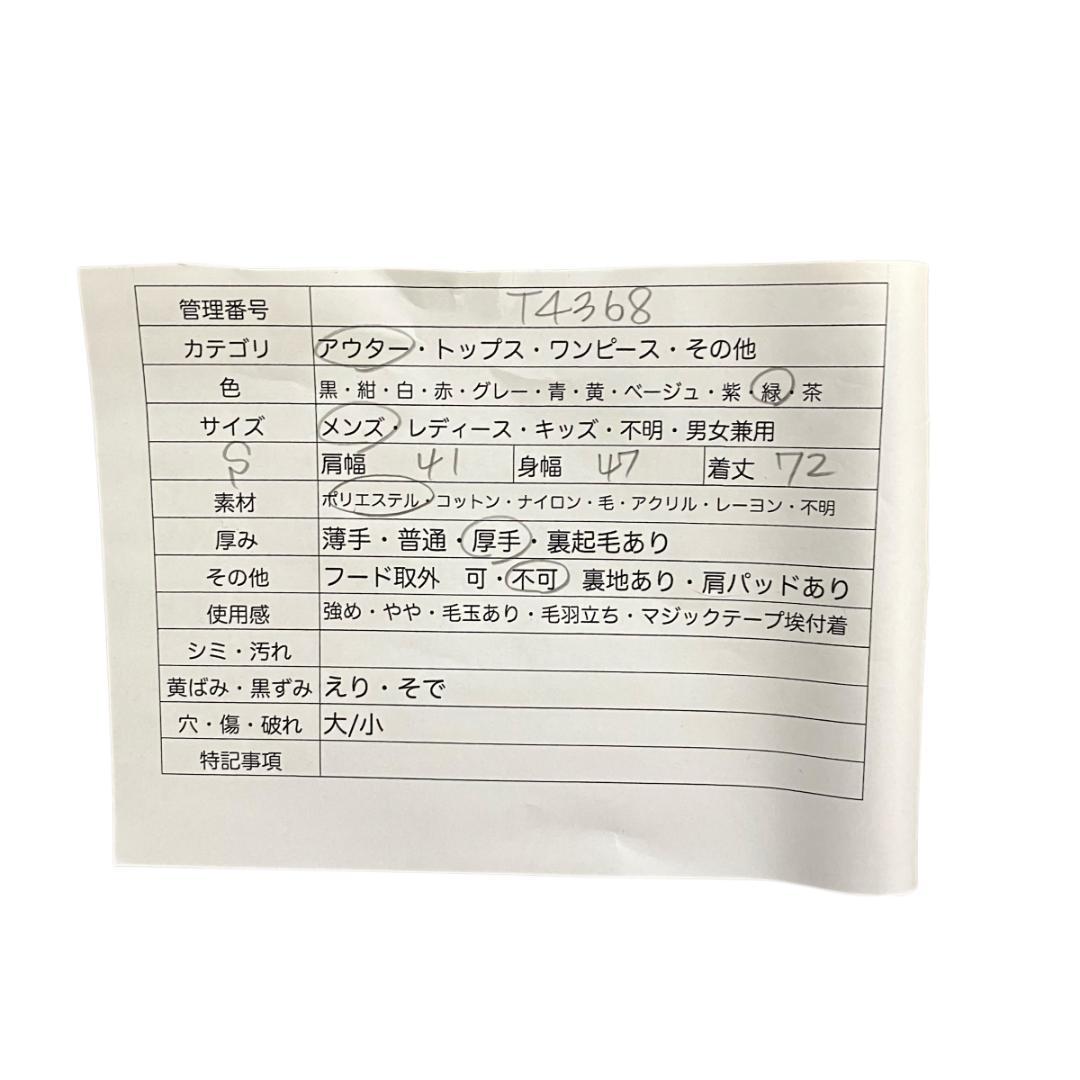 管理番号 T4368
カテゴリ アウター・トップス・ワンピース・その他
色 黒・紺・白・赤・グレー・青・黄・ベージュ・紫・緑・茶
サイズ メンズ・レディース・キッズ・不明・男女兼用
S 肩幅 41 身幅 47 着丈 72
素材 ポリエステル・コットン・ナイロン・毛・アクリル・レーヨン・不明
厚み 薄手・普通・厚手・裏起毛あり
その他 フード取外 可・不可 裏地あり・肩パッドあり
使用感 強め・やや・毛玉あり・毛羽立ち・マジックテープ埃付着
シミ・汚れ
黄ばみ・黒ずみ えり・そで
穴・傷・破れ 大/小
特記事項